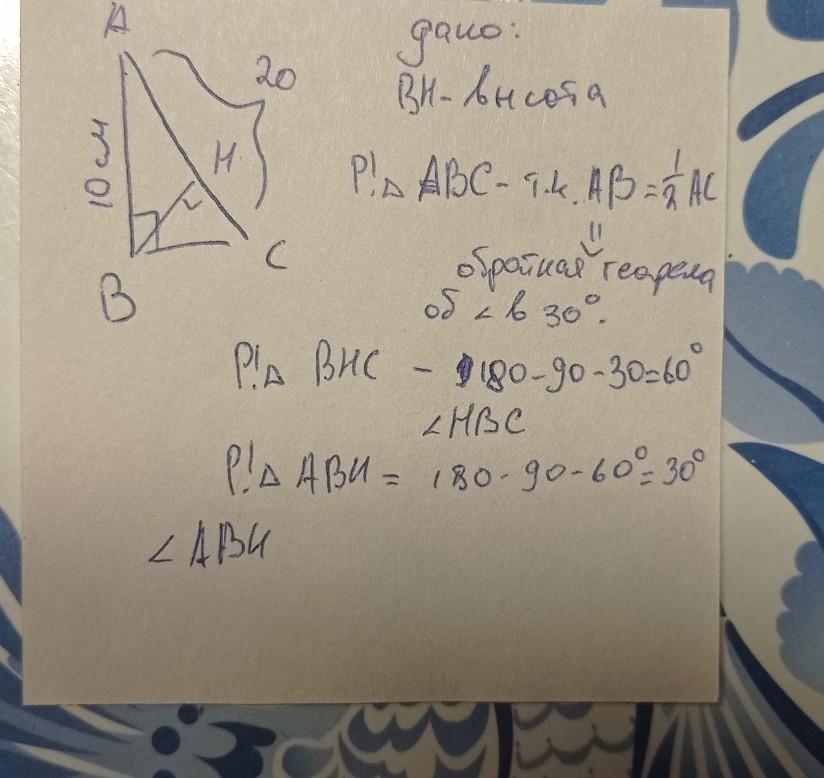 A
20
10 см
H
B
C
дано:
BH - высота
P!△ ABC - т.к. AB = 1/2 AC
||
обратная теарема
об ∠ в 30°.
P!△ BHC - 180-90-30=60°
∠HBC
P!△ ABH = 180-90-60°=30°
∠ABH